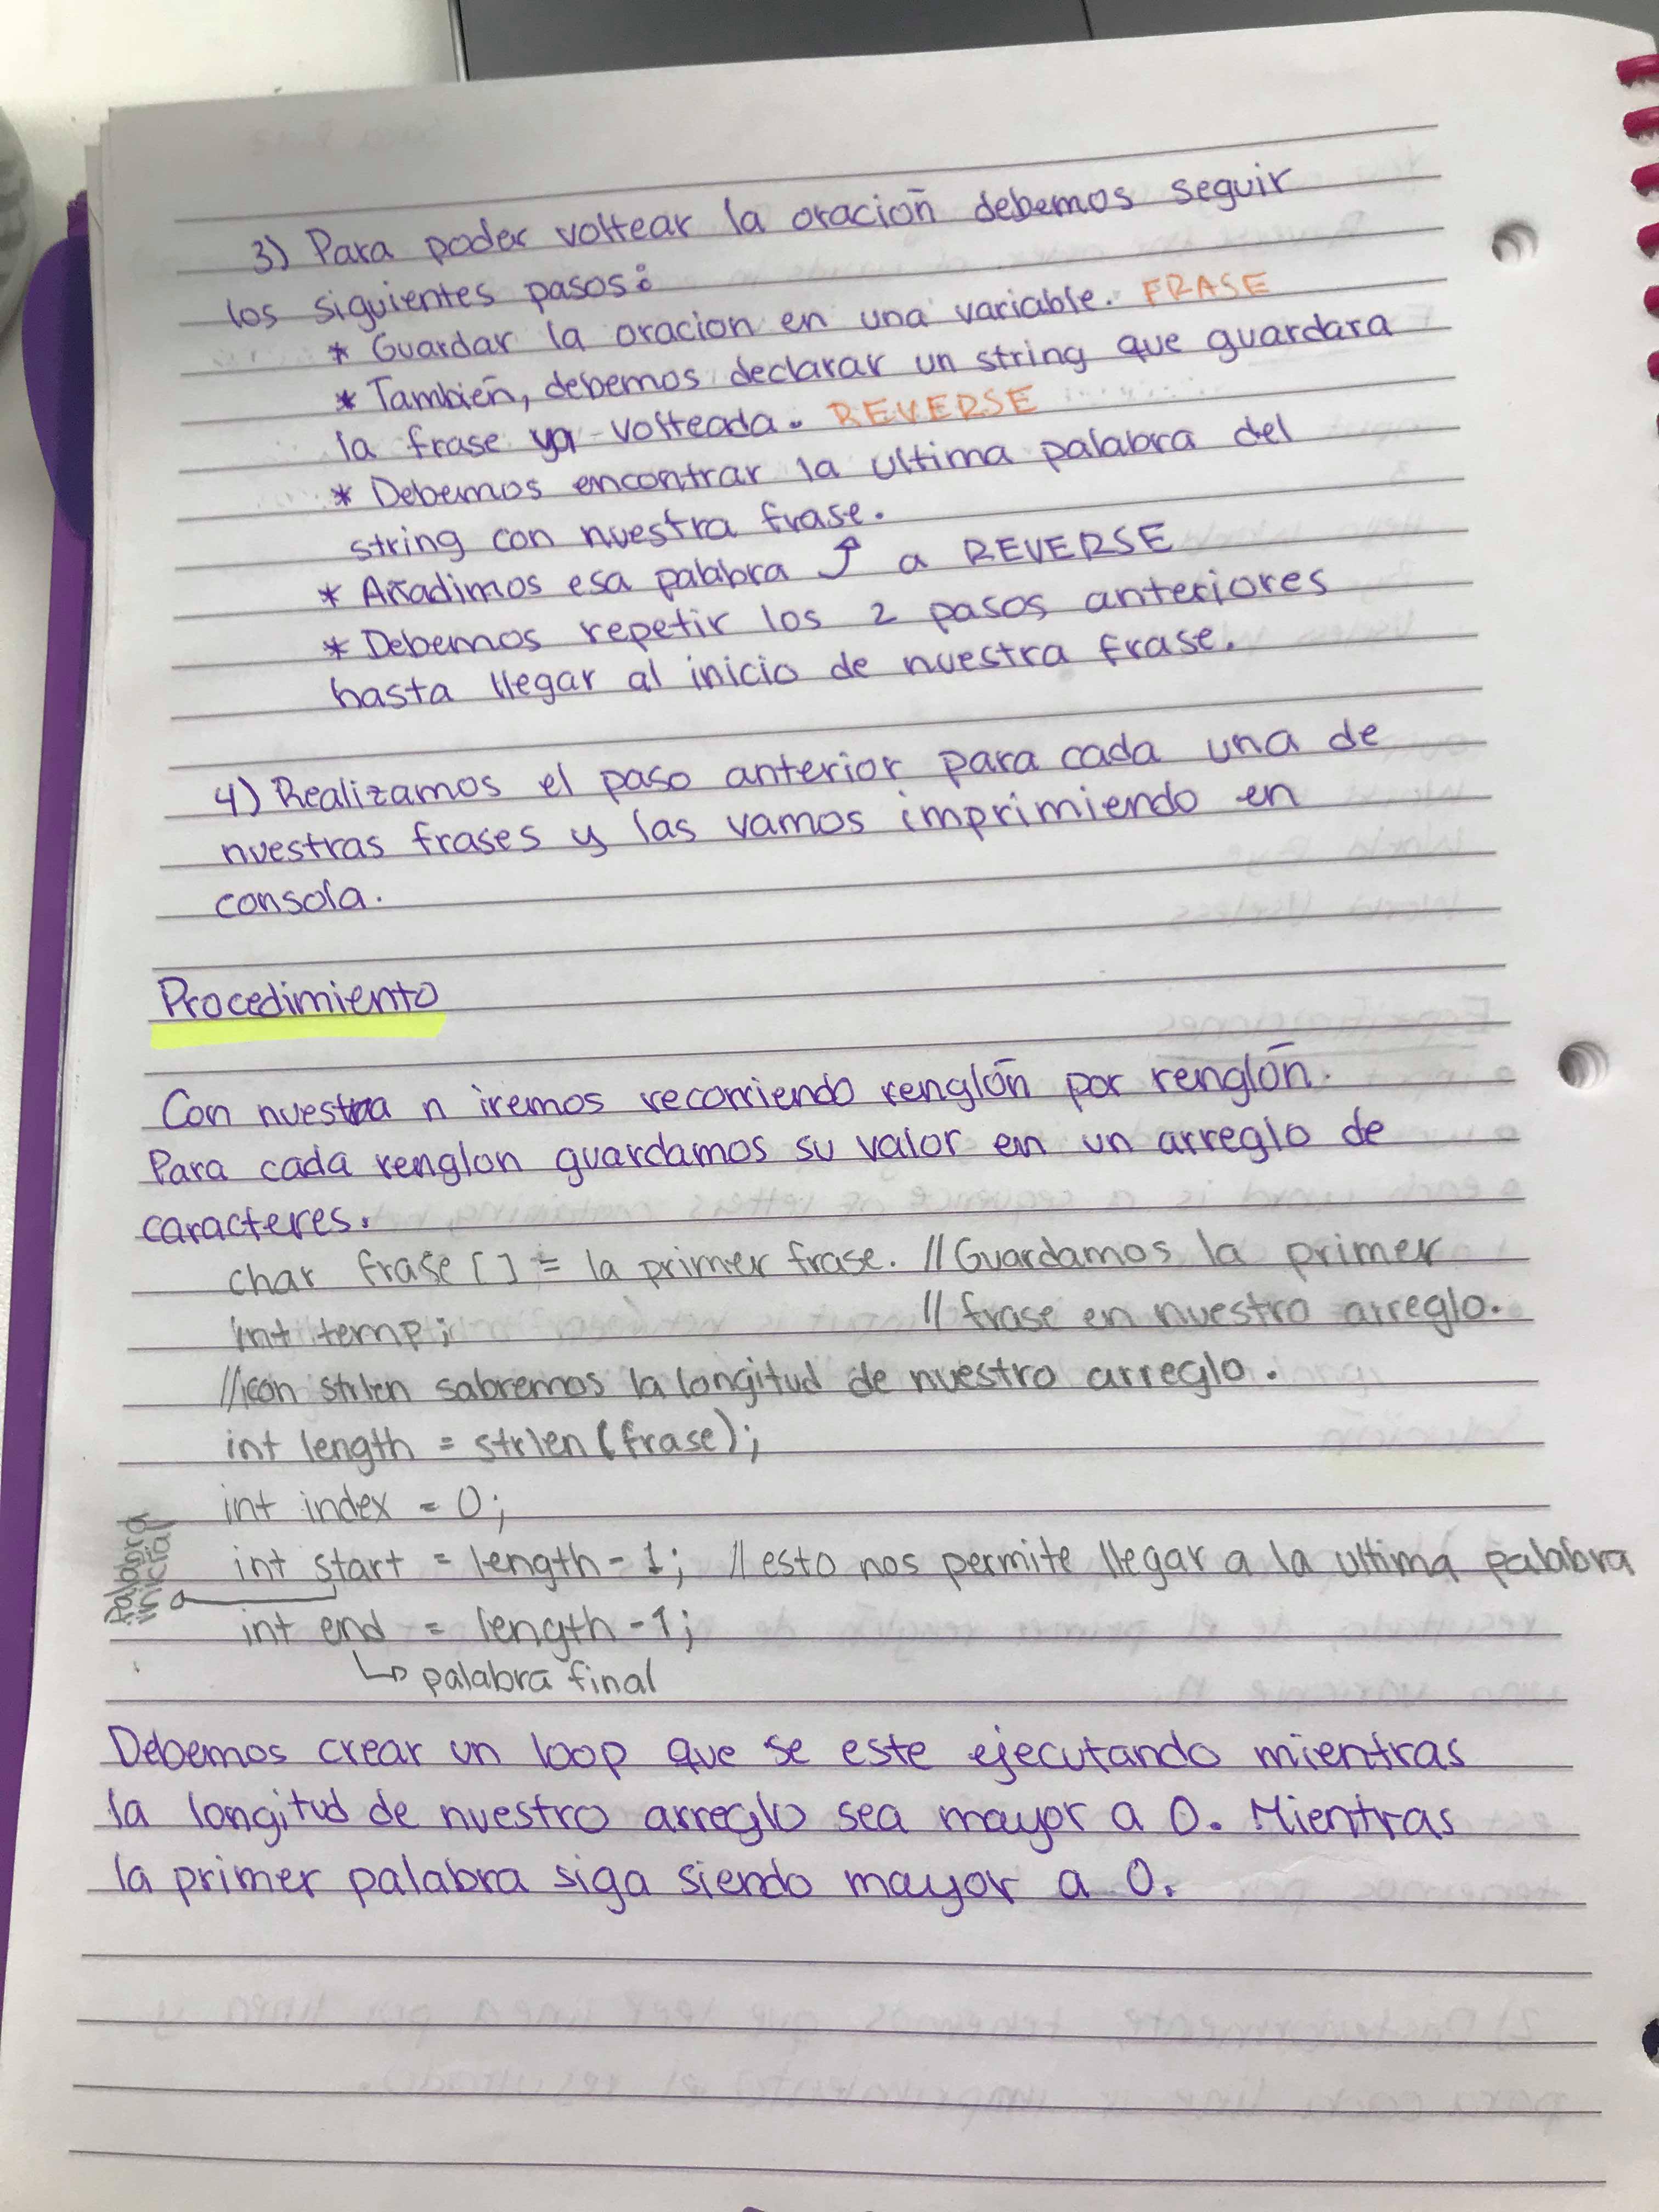 3) Para poder voltear la oración debemos seguir
los siguientes pasos:
* Guardar la oracion en una variable. FRASE
* También, debemos declarar un string que guardara
la frase ya volteada. REVERSE
* Debemos encontrar la ultima palabra del
string con nuestra frase.
* Añadimos esa palabra ↑ a REVERSE
* Debemos repetir los 2 pasos anteriores
hasta llegar al inicio de nuestra frase.
4) Realizamos el paso anterior para cada una de
nuestras frases y las vamos imprimiendo en
consola.
Procedimiento
Con nuestra n iremos recorriendo renglón por renglón.
Para cada renglon guardamos su valor en un arreglo de
caracteres.
char frase [] = la primer frase. // Guardamos la primer
int temp; // frase en nuestro arreglo.
// con strlen sabremos la longitud de nuestro arreglo.
int length = strlen (frase);
int index = 0;
Palabra
inicial
int start = length - 1; // esto nos permite llegar a la ultima palabra
int end = length - 1;
↳ palabra final
Debemos crear un loop que se este ejecutando mientras
la longitud de nuestro arreglo sea mayor a 0. Mientras
la primer palabra siga siendo mayor a 0.